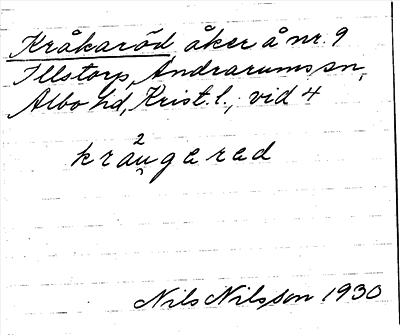 Kråkaröd åker å nr. 9
Illstorp, Andrarums sn,
Albo hd, Krist. l., vid 4
2
kråu̯garad
Nils Nilsson 1930